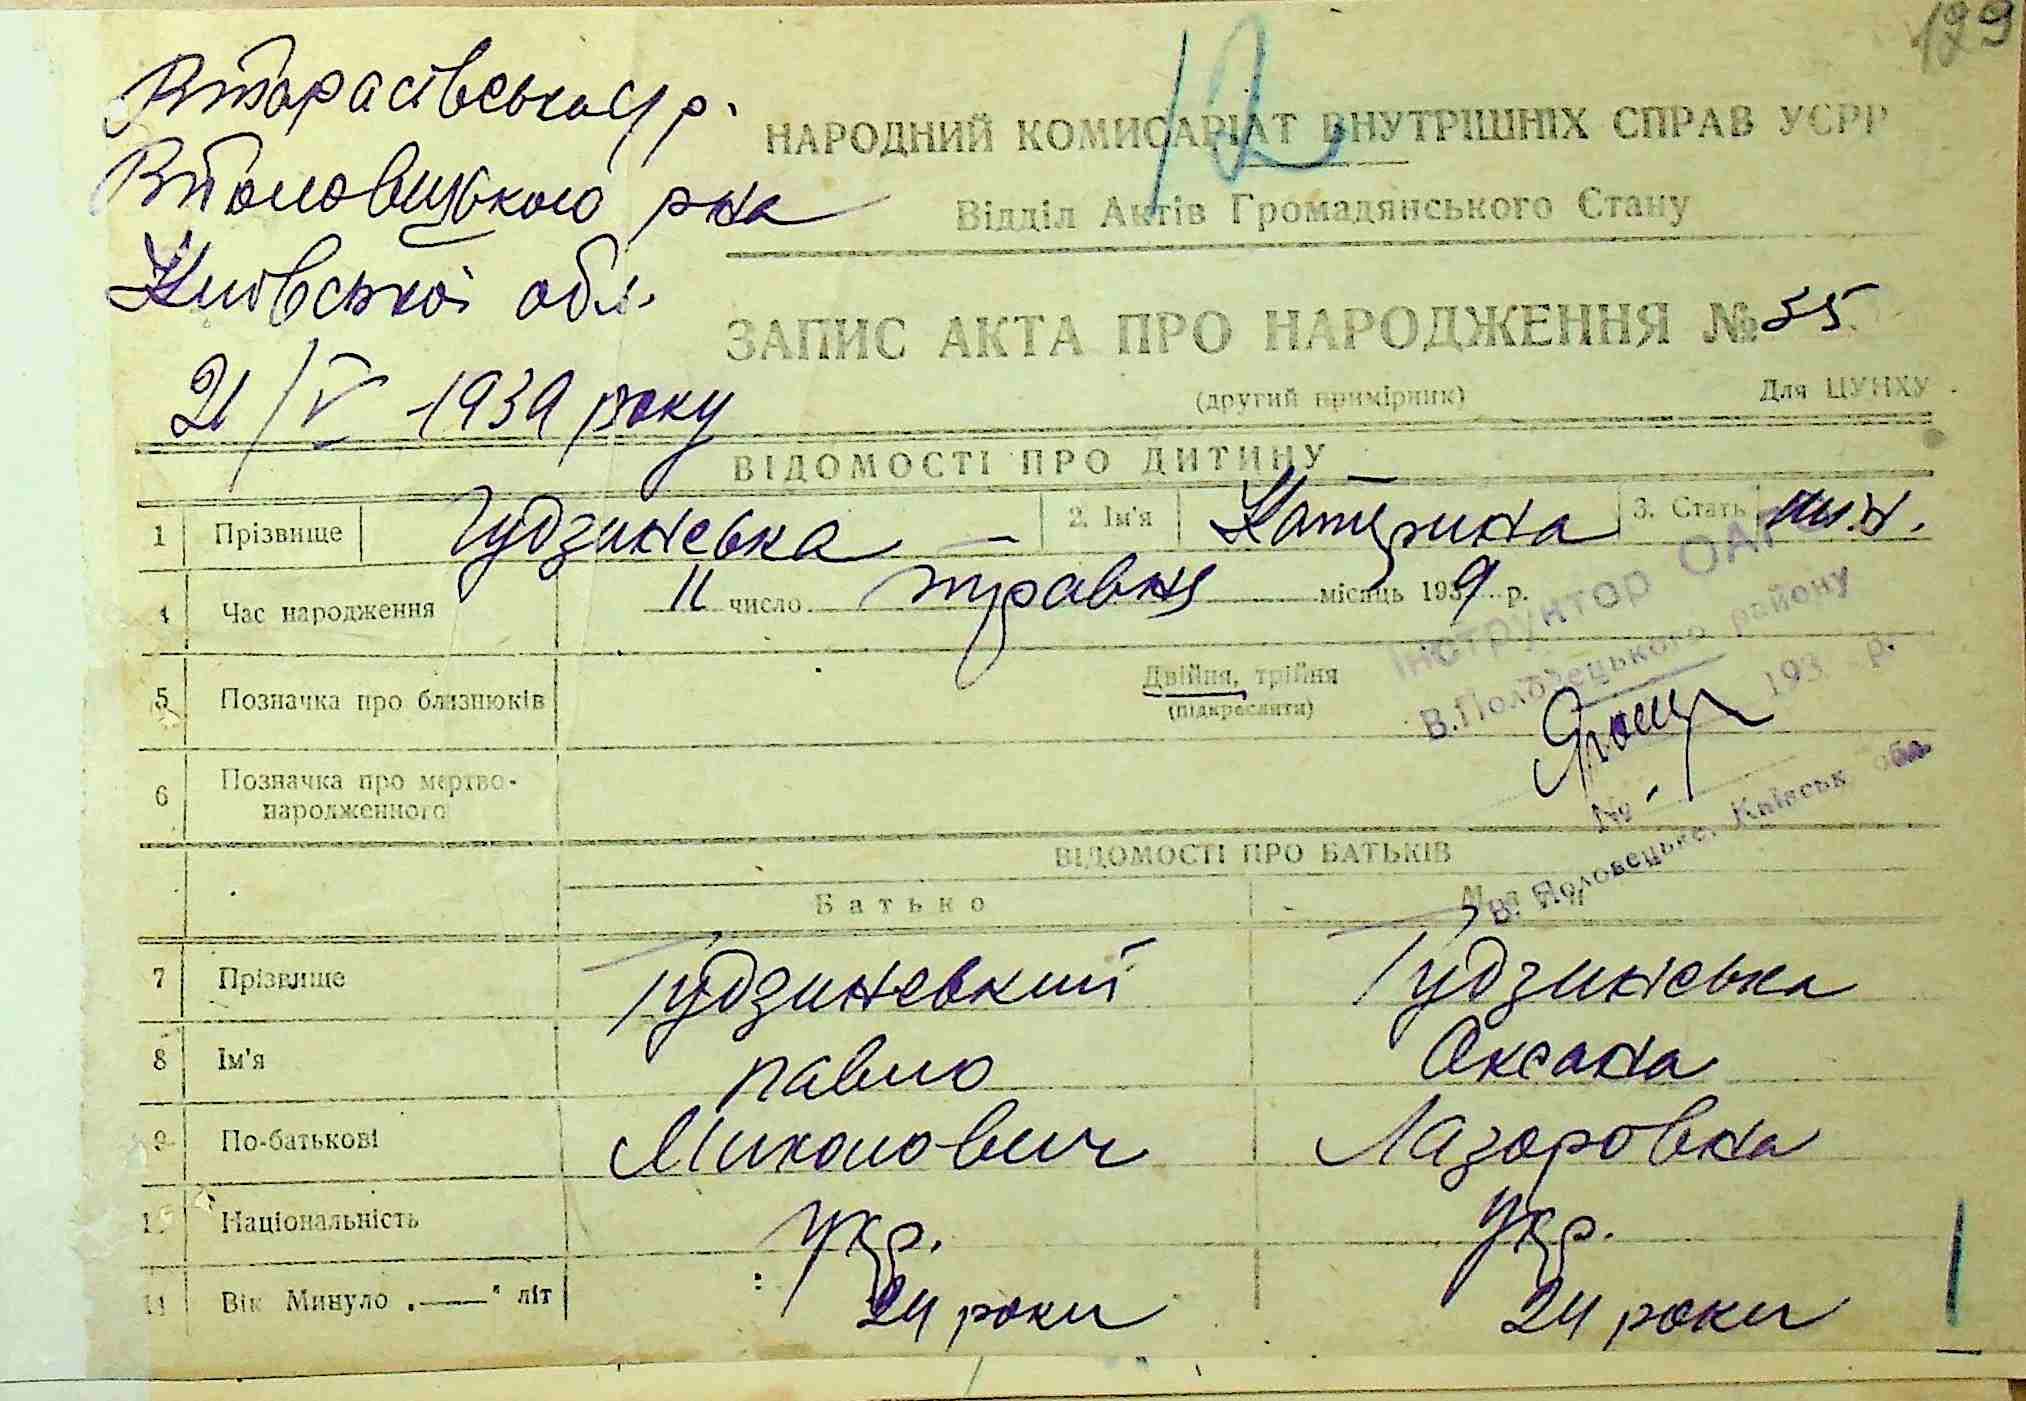 129
Втарасівська с/р.
ВПоловецького р-на
Київської обл.
21/V 1939 року
12
НАРОДНИЙ КОМИСАРІАТ ВНУТРІШНІХ СПРАВ УСРР
Відділ Актів Громадянського Стану
ЗАПИС АКТА ПРО НАРОДЖЕННЯ № 55
(другий примірник) Для ЦУНХУ
ВІДОМОСТІ ПРО ДИТИНУ
1 Прізвище Гудзинська 2. Ім'я Катерина 3. Стать жін.
4 Час народження 11 число травня місяць 1939 р.
5 Позначка про близнюків Двійня, трійня
(підкреслити)
6 Позначка про мертво-
народженного
Інструктор ОАГС
В.Половецького району
193 р.
№
В. Половецьке, Київськ. обл.
ВІДОМОСТІ ПРО БАТЬКІВ
Батько Мати
7 Прізвище Гудзинський Гудзинська
8 Ім'я павло Оксана
9 По-батькові Миколович Лазоровна
10 Національність укр. укр.
11 Вік Минуло „—" літ 24 роки 24 роки